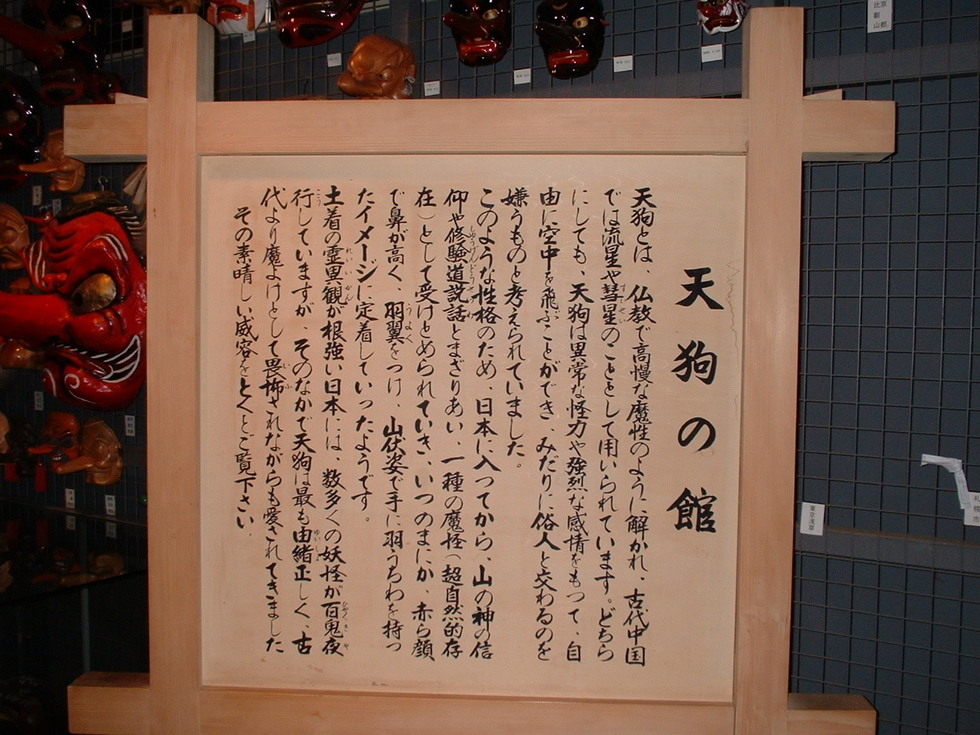 天狗の館
天狗とは、仏教で高慢な魔性のように解かれ、古代中国
では流星や彗星のことととして用いられています。どちら
にしても、天狗は異常な怪力や強烈な感情をもって、自
由に空中を飛ぶことができ、みだりに俗人と交わるのを
嫌うものと考えられていました。
このような性格のため、日本に入ってから、山の神の信
仰や修験道説話とまざりあい、一種の魔怪(超自然的存
在)として受けとめられていき、いつのまにか、赤ら顔
で鼻が高く、羽翼をつけ、山伏姿で手に羽うちわを持っ
たイメージに定着していったようです。
土着の霊異観が根強い日本には、数多くの妖怪が百鬼夜
行していますが、そのなかで天狗は最も由緒正しく、古
代より魔よけとして畏怖されながらも愛されてきました
その素晴しい威容をとくとご覧下さい.
東京浅草